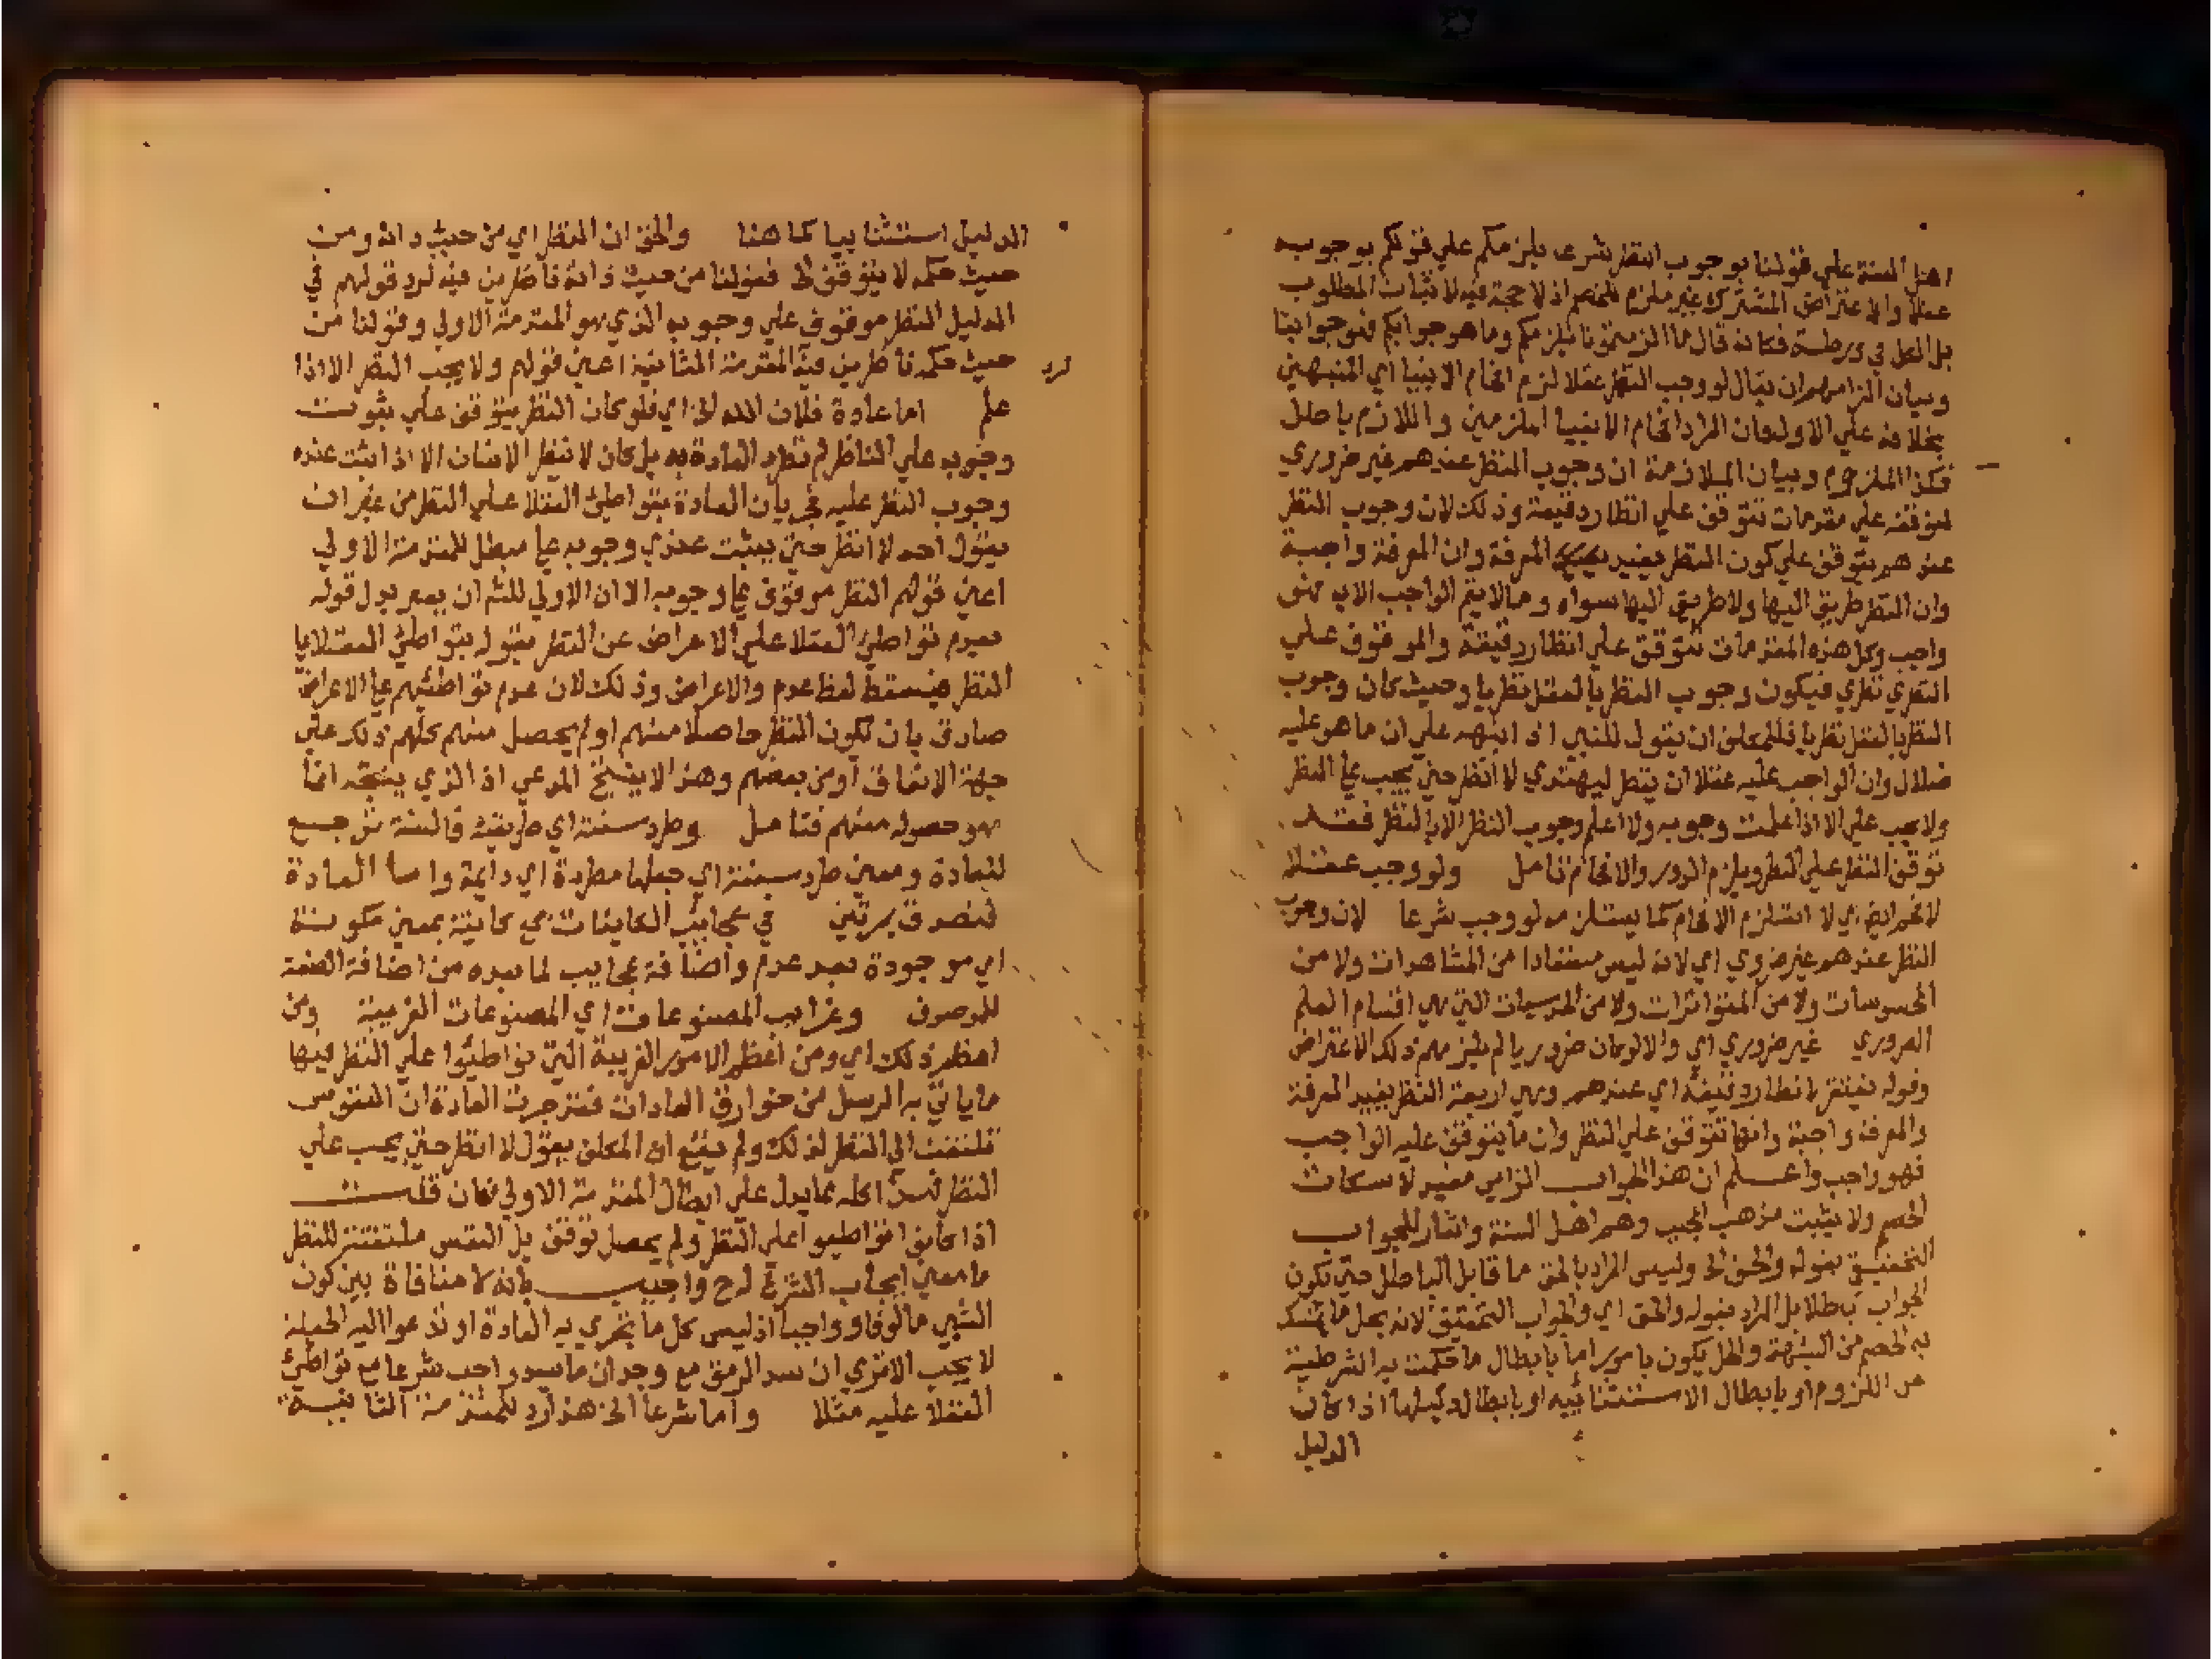 اهل السنة علي قولنا بوجوب النظر شرعا يلزمكم علي قولكم بوجوبه
عقلا والاعتراض المشترك غير ملزم للخصم اذ لا حجة فيه لاثبات المطلوب
بل الكل في ورطة فكانه قال ما الزمتمونا يلزمكم وما هو جوابكم فهو جوابنا
وبيان الزامهم ان يقال لو وجب النظر عقلا لزم افحام الانبيا اي المنبهين
بخلافه علي الاول فان المراد افحام الانبيا الملزمين واللازم باطل
فكذا الملزوم وبيان الملازمة ان وجوب النظر عندهم غير ضروري
لتوقفه علي مقدمات تتوقف علي انظار دقيقة وذلك لان وجوب النظر
عندهم يتوقف علي كون النظر يفيد المعرفة وان المعرفة واجبة
وان النظر طريق اليها ولا طريق اليها سواه وما لا يتم الواجب الا به فهو
واجب وكل هذه المقدمات تتوقف علي انظار دقيقة والموقوف علي
النظري نظري فيكون وجوب النظر بالعقل نظريا وحيث كان وجوب
النظر بالعقل نظريا فللمكلف ان يقول للنبي اذا انبهه علي ان ما هو عليه
ضلال وان الواجب عليه عقلا ان ينظر ليهتدي لا انظر حتي يجب علي النظر
ولا يجب علي الا اذا علمت وجوبه ولا اعلم وجوب النظر الا بالنظر فقد
توقف النظر علي النظر ويلزم الدور والافحام تامل ولو وجب عقلا
لافحم ايضا اي لا استلزم الافحام كما يستلزمه لو وجب شرعا لان وجوب
النظر عندهم غير ضروري اي لانه ليس مستفادا من المشاهدات ولا من
المحسوسات ولا من المتواترات ولا من الحدسيات التي هي اقسام العلم
الضروري غير ضروري اي والا لو كان ضروريا لم يلزمهم ذلك الاعتراض
وقوله يفتقر لانظار دقيقة اي عندهم وهي اربعة النظر يفيد المعرفة
والمعرفة واجبة وانها تتوقف علي النظر وان ما يتوقف عليه الواجب
فهو واجب واعلم ان هذا الجواب الزامي مفيد لاسكات
الخصم ولا يثبت مذهب المجيب وهم اهل السنة واشار للجواب
التحقيقي بقوله والحق الخ وليس المراد بالحق ما قابل الباطل حتي يكون
الجواب باطلا بل المراد بقوله والحق اي والجواب التحقيقي لانه يحل ما تمسك
به الخصم من الشبهة والحل يكون بامور اما بابطال ما حكمت به الشرطية
من اللزوم او بابطال الاستثنائية او بابطال دليلها اذا كان
الدليل
الدليل استثنائيا كما هنا والحق ان النظر اي من حيث ذاته ومن
حيث حكمه لا يتوقف الخ فقولنا من حيث ذاته ناظرين فيه لرد قولهم في
الدليل النظر موقوف علي وجوبه الذي هو المقدمة الاولي وقولنا من
حيث حكمه ناظرين فيه المقدمة الثانية اعني قولهم ولا يجب النظر الا اذا
لرد
علم اما عادة فلان الله الخ اي فلو كان النظر يتوقف علي ثبوت
وجوبه علي الناظر لم تطرد العادة به بل كان لا ينظر الانسان الا اذا ثبت عنده
وجوب النظر عليه فجريان العادة بتواطئ العقلا علي النظر من غير ان
يقول احد لا انظر حتي يثبت عندي وجوبه علي مبطل للمقدمة الاولي
اعني قولهم النظر موقوف علي وجوبه الا ان الاولي للشم ان يعبر بدل قوله
بعدم تواطئ العقلا علي الاعراض عن النظر بقوله بتواطئ العقلا علي
النظر فيسقط لفظ عدم والاعراض وذلك لان عدم تواطئهم علي الاعراض
صادق بان يكون النظر حاصلا منهم او لم يحصل منهم كلهم ذلك علي
جهة الاتفاق او من بعضهم وهذا لا ينتج المدعي اذ الذي ينتجه انما
هو حصوله منهم فتامل وطرد سنته اي طريقته فالسنة ترجع
للعادة ومعني طرد سنته اي جعلها مطردة اي دايمة واما العادة
فتصدق بمرتين في عجايب الكاينات جمع كاينة بمعني مكونة
اي موجودة بعد عدم واضافة عجايب لما بعده من اضافة الصفة
للموصوف وغرايب المصنوعات اي المصنوعات الغريبة ومن
اعظم ذلك اي ومن اعظم الامور الغريبة التي تواطئوا علي النظر فيها
ما ياتي به الرسل من خوارق العادات فقد جرت العادة ان النفوس
تلتفت الي النظر لذلك ولم يقع ان المكلف يقول لا انظر حتي يجب علي
النظر فهذا كله مما يدل علي ابطال المقدمة الاولي فان قلت
اذا كانوا تواطيوا علي النظر ولم يحصل توقف بل النفس ملتفتة للنظر
ما معني ايجاب الشرع له ح واجيب بانه لا منافاة بين كون
الشي مالوفا وواجبا اذ ليس كل ما تجري به العادة او تدعوا اليه الجبلة
لا يجب الا تري ان سد الرمق مع وجدان ما يسد واجب شرعا مع تواطئ
العقلا عليه مثلا واما شرعا الخ هذا رد للمقدمة الثانية